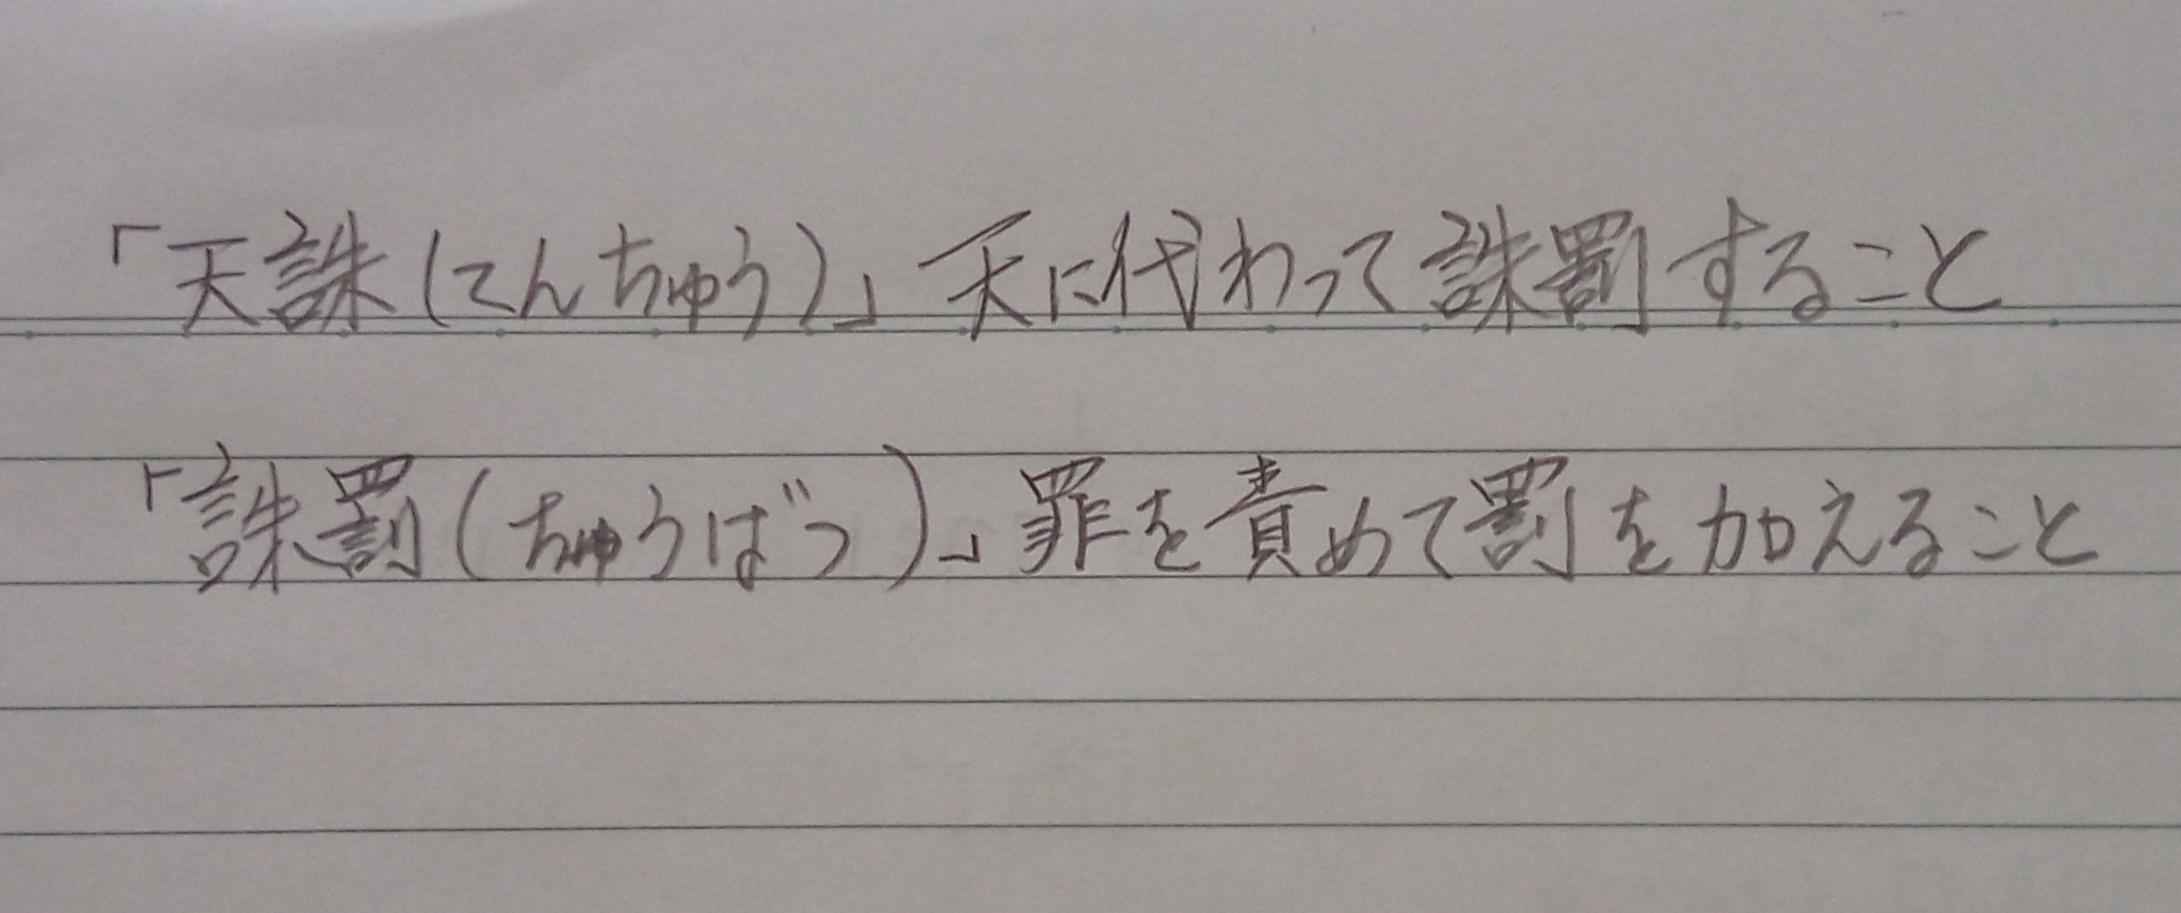 「天誅(てんちゅう)」天に代わって誅罰すること
「誅罰(ちゅうばつ)」罪を責めて罰を加えること